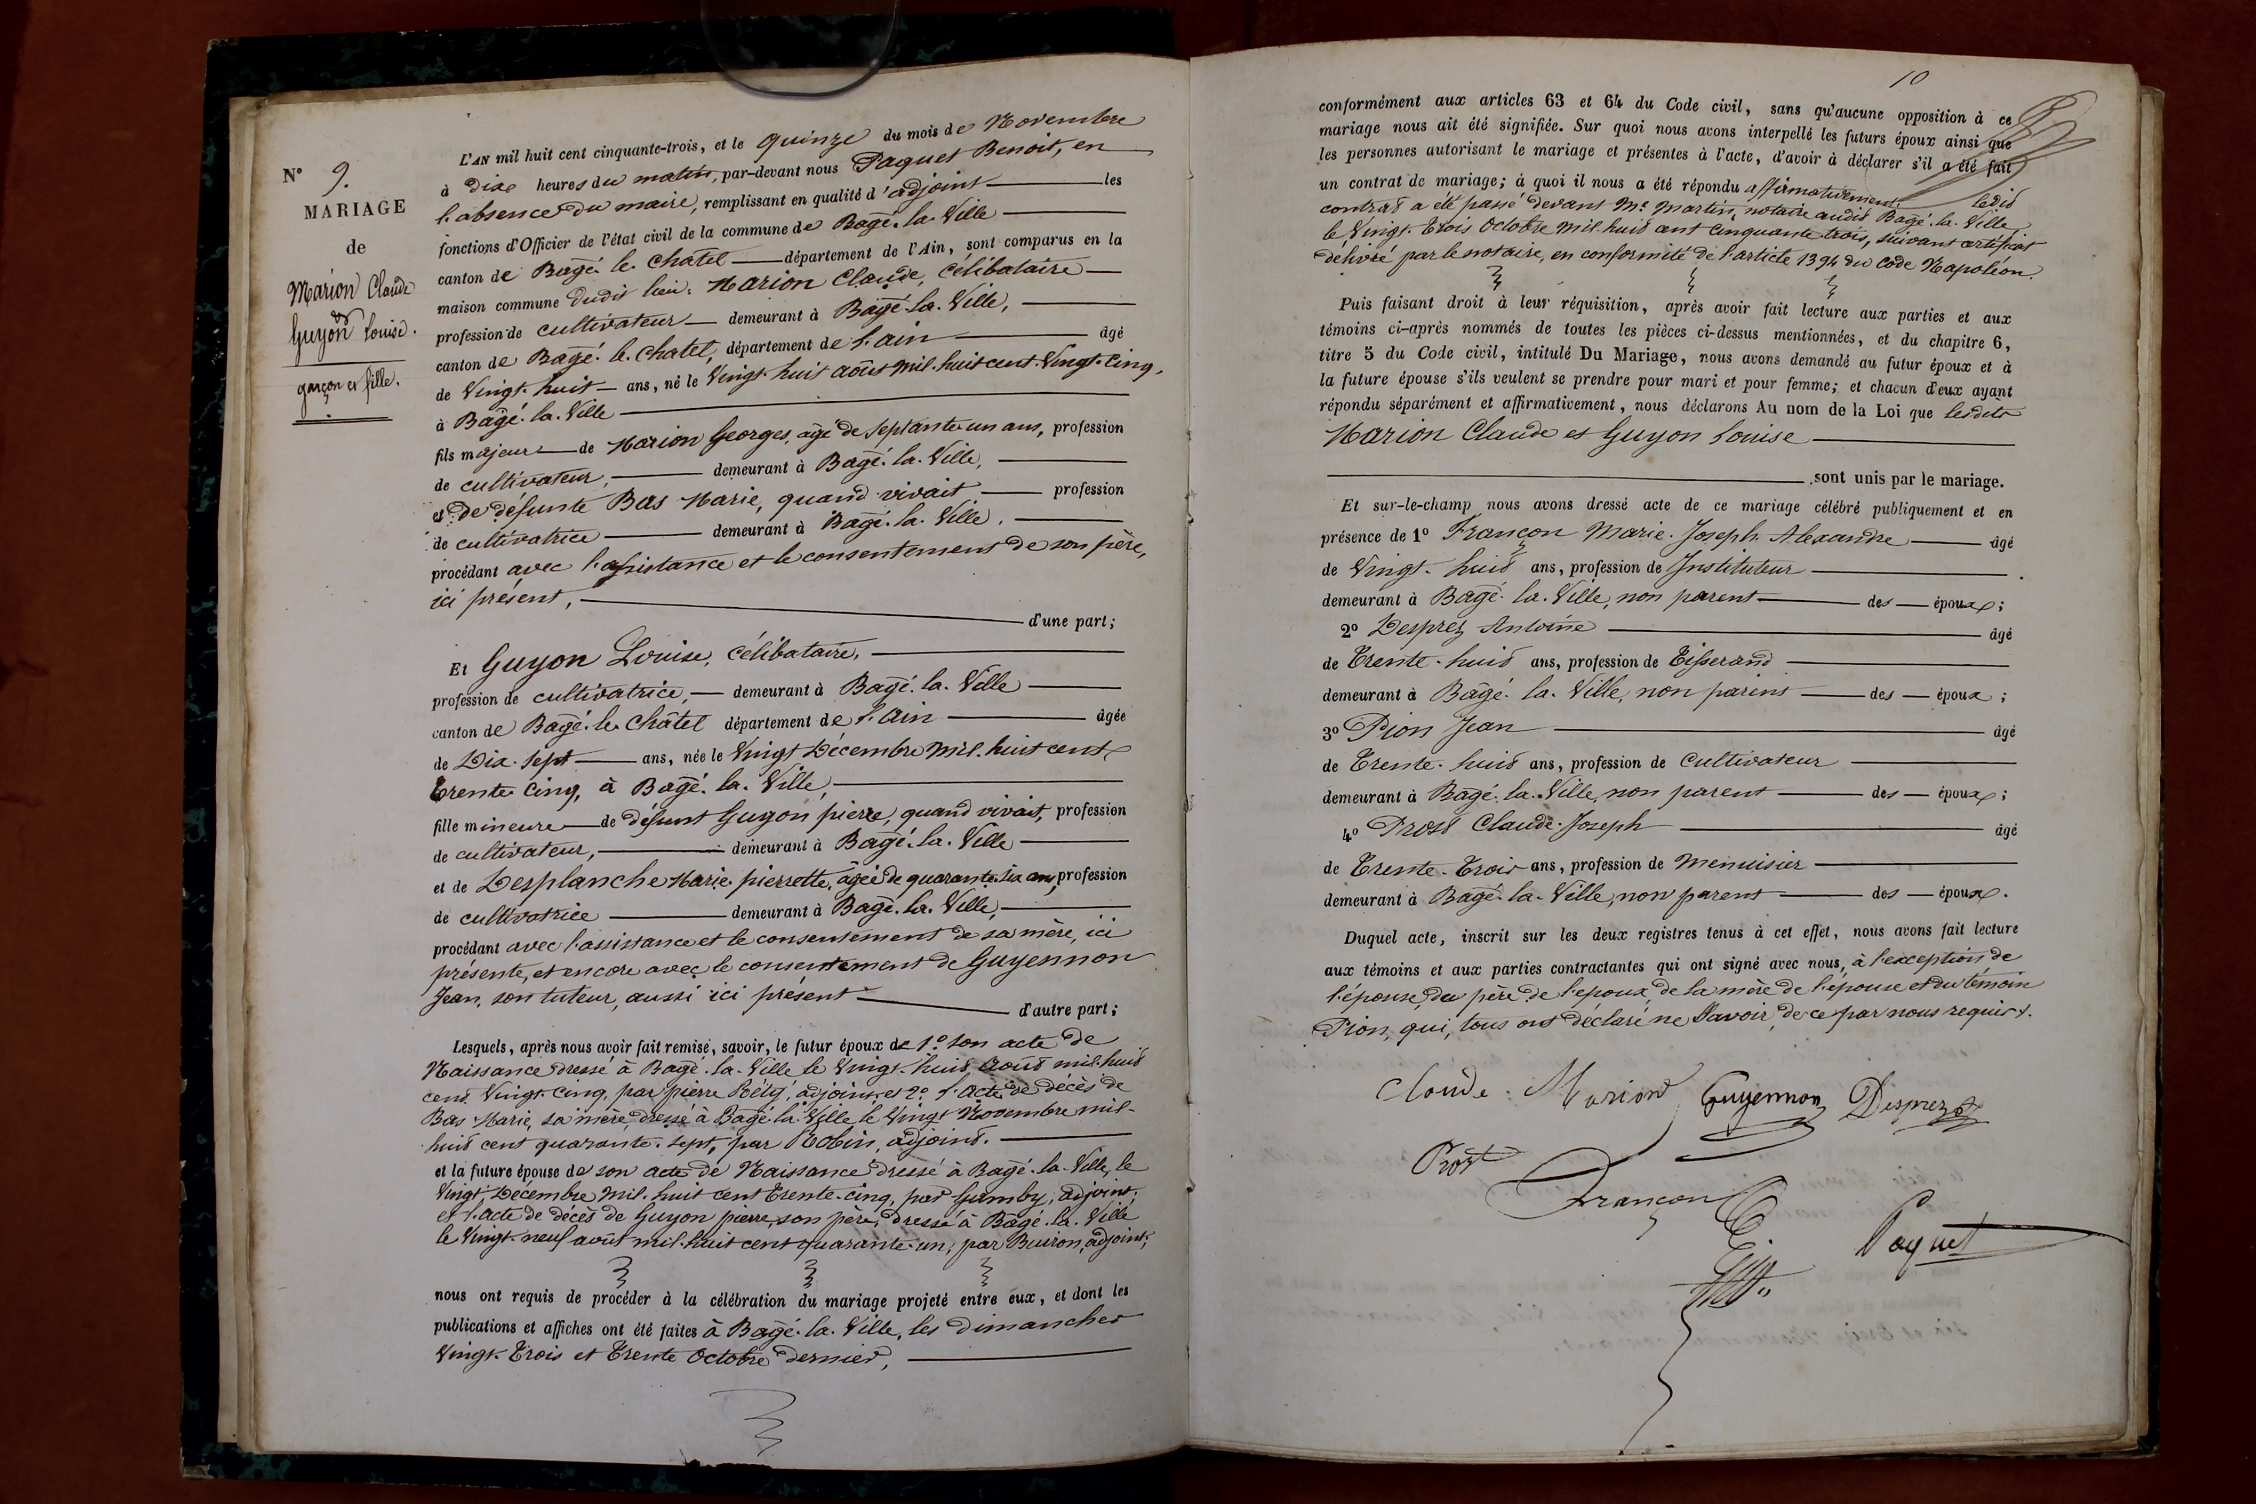 N° 9.
MARIAGE
de
Marion Claude
et
Guyon Louise.
garçon et fille.
L'AN mil huit cent cinquante-trois, et le quinze du mois de Novembre
à dix heures du matin, par-devant nous Paquet Benoit, en
l'absence du maire, remplissant en qualité d'adjoint les
fonctions d'Officier de l'état civil de la commune de Bagé-la-Ville
canton de Bagé-le-Chatel département de l'Ain, sont comparus en la
maison commune dudit lieu: Marion Claude, célibataire
profession de cultivateur demeurant à Bagé-la-Ville,
canton de Bagé-le-Chatel, département de l'ain âgé
de Vingt-huit ans, né le Vingt-huit août mil-huit cent-Vingt-cinq,
à Bagé-la-Ville
fils majeur de Marion Georges, âgé de septante-un ans, profession
de cultivateur, demeurant à Bagé-la-Ville,
et de défunte Bas Marie, quand vivait profession
de cultivatrice demeurant à Bagé-la-Ville,
procédant avec l'assistance et le consentement de son père,
ici présent, d'une part;
Et Guyon Louise, célibataire,
profession de cultivatrice demeurant à Bagé-la-Ville
canton de Bagé-le-Châtel département de l'Ain âgée
de Dix-sept ans, née le Vingt Décembre mil-huit cent
Trente-cinq, à Bagé-la-Ville,
fille mineure de défunt Guyon pierre, quand vivait, profession
de cultivateur, demeurant à Bagé-la-Ville
et de Desplanche Marie-pierrette, âgée de quarante-six ans, profession
de cultivatrice demeurant à Bagé-la-Ville,
procédant avec l'assistance et le consentement de sa mère, ici
présente, et encore avec le consentement de Guyennon
Jean, son tuteur, aussi ici présent d'autre part;
Lesquels, après nous avoir fait remise, savoir, le futur époux de 1° son acte de
Naissance dressé à Bagé-la-Ville le Vingt-huit Août mil-huit
cent Vingt-cinq, par pierre adjoint, et 2° l'acte de décès de
Bas Marie, sa mère, dressé à Bagé-la-Ville le Vingt Novembre mil-
huit cent quarante-sept, par Robin, adjoint.
et la future épouse de son acte de Naissance dressé à Bagé-la-Ville, le
Vingt Décembre mil-huit cent Trente-cinq, par Gamby, adjoint,
et l'acte de décès de Guyon pierre, son père, dressé à Bagé-la-Ville
le Vingt-neuf août mil-huit cent quarante-un, par Buiron, adjoint;
nous ont requis de procéder à la célébration du mariage projeté entre eux, et dont les
publications et affiches ont été faites à Bagé-la-Ville, les dimanches
Vingt-Trois et Trente Octobre dernier,
10
conformément aux articles 63 et 64 du Code civil, sans qu'aucune opposition à ce
mariage nous ait été signifiée. Sur quoi nous avons interpellé les futurs époux ainsi que
les personnes autorisant le mariage et présentes à l'acte, d'avoir à déclarer s'il a été fait
un contrat de mariage; à quoi il nous a été répondu affirmativement: ledit
contrat a été passé devant Me Martin, notaire audit Bagé-la-Ville
le Vingt-Trois Octobre mil huit cent cinquante-trois, suivant certificat
délivré par le notaire, en conformité de l'article 1394 du Code Napoléon.
Puis faisant droit à leur réquisition, après avoir fait lecture aux parties et aux
témoins ci-après nommés de toutes les pièces ci-dessus mentionnées, et du chapitre 6,
titre 5 du Code civil, intitulé Du Mariage, nous avons demandé au futur époux et à
la future épouse s'ils veulent se prendre pour mari et pour femme; et chacun d'eux ayant
répondu séparément et affirmativement, nous déclarons Au nom de la Loi que lesdits
Marion Claude et Guyon Louise
sont unis par le mariage.
Et sur-le-champ nous avons dressé acte de ce mariage célébré publiquement et en
présence de 1° Françon Marie-Joseph-Alexandre âgé
de Vingt-huit ans, profession de Instituteur
demeurant à Bagé-la-Ville, non parent des époux;
2° Desprez Antoine âgé
de Trente-huit ans, profession de Tisserand
demeurant à Bagé-la-Ville, non parent des époux;
3° Pion Jean âgé
de Trente-huit ans, profession de Cultivateur
demeurant à Bagé-la-Ville, non parent des époux;
4° Prost Claude-Joseph âgé
de Trente-Trois ans, profession de Menuisier
demeurant à Bagé-la-Ville, non parent des époux.
Duquel acte, inscrit sur les deux registres tenus à cet effet, nous avons fait lecture
aux témoins et aux parties contractantes qui ont signé avec nous, à l'exception de
l'épouse, du père de l'époux, de la mère de l'épouse et du témoin
Pion, qui, tous ont déclaré ne savoir, de ce par nous requis.
Claude Marion Guyennon Desprez
Prost
Françon
Paquet